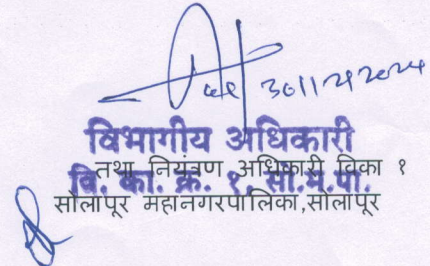 30/12/2024
विभागीय अधिकारी
तथा नियंत्रण अधिकारी विका १
वि. का. क्र. १, सो.म.पा.
सोलापूर महानगरपालिका,सोलापूर